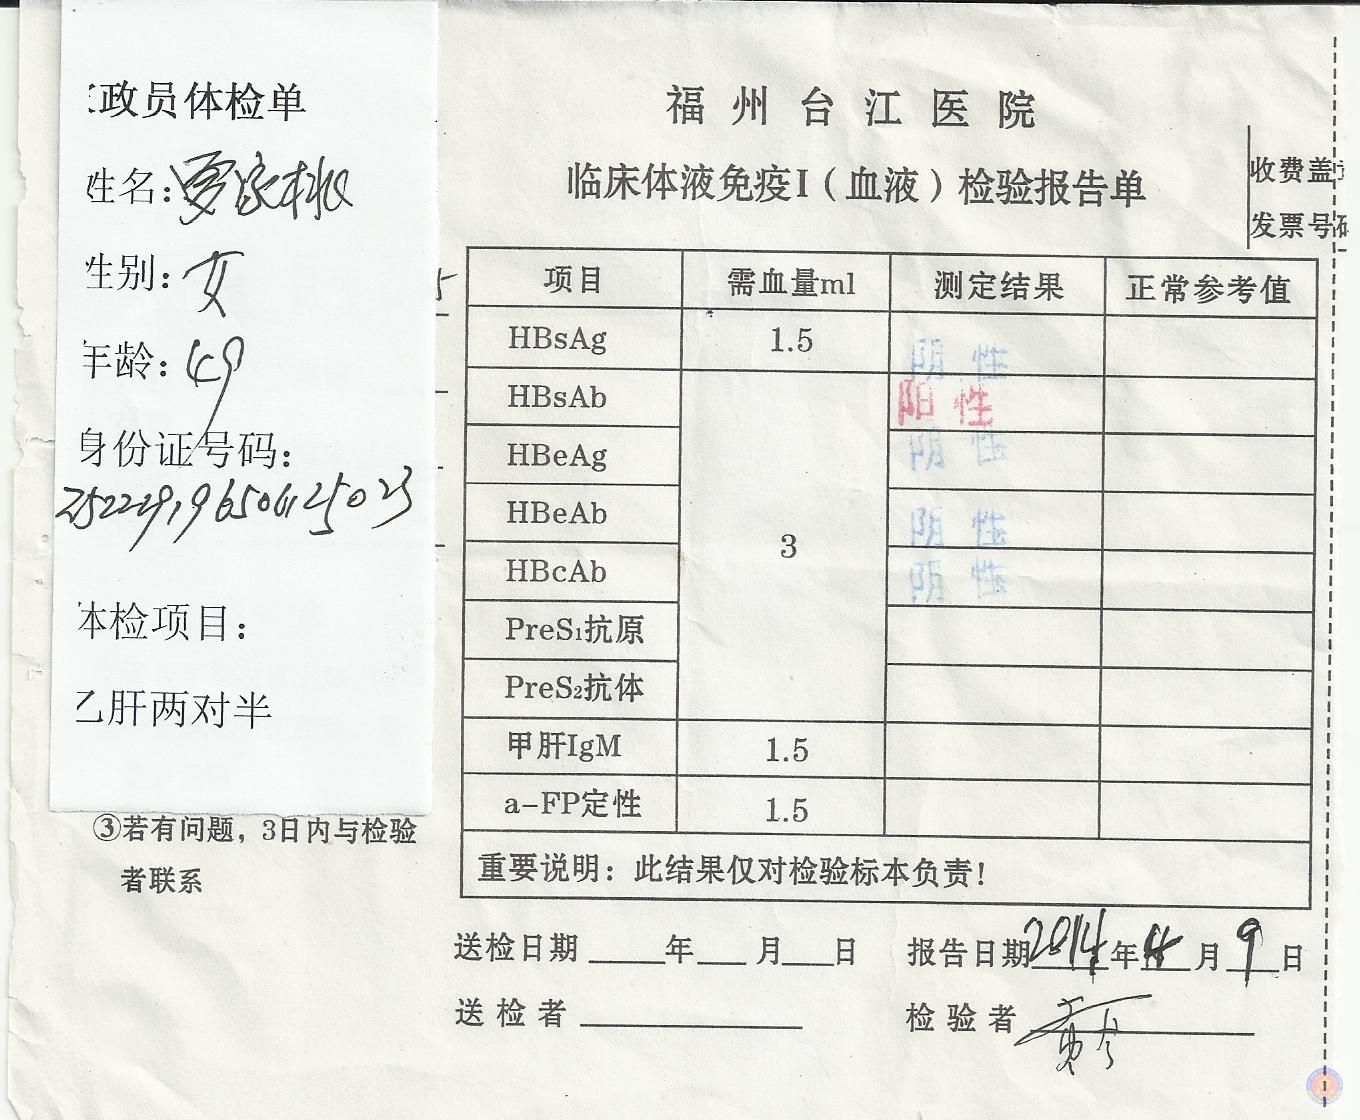 政员体检单
姓名:
性别:女
年龄:49
身份证号码:
体检项目:
乙肝两对半
③若有问题，3日内与检验
者联系
福州台江医院
临床体液免疫I（血液）检验报告单
收费盖
发票号码
项目 需血量ml 测定结果 正常参考值
HBsAg 1.5 阴性
HBsAb 阳性
HBeAg 阴性
HBeAb 3 阴性
HBcAb 阴性
PreS₁抗原
PreS₂抗体
甲肝IgM 1.5
a-FP定性 1.5
重要说明：此结果仅对检验标本负责!
送检日期 年 月 日 报告日期2014年4月9日
送检者 检验者